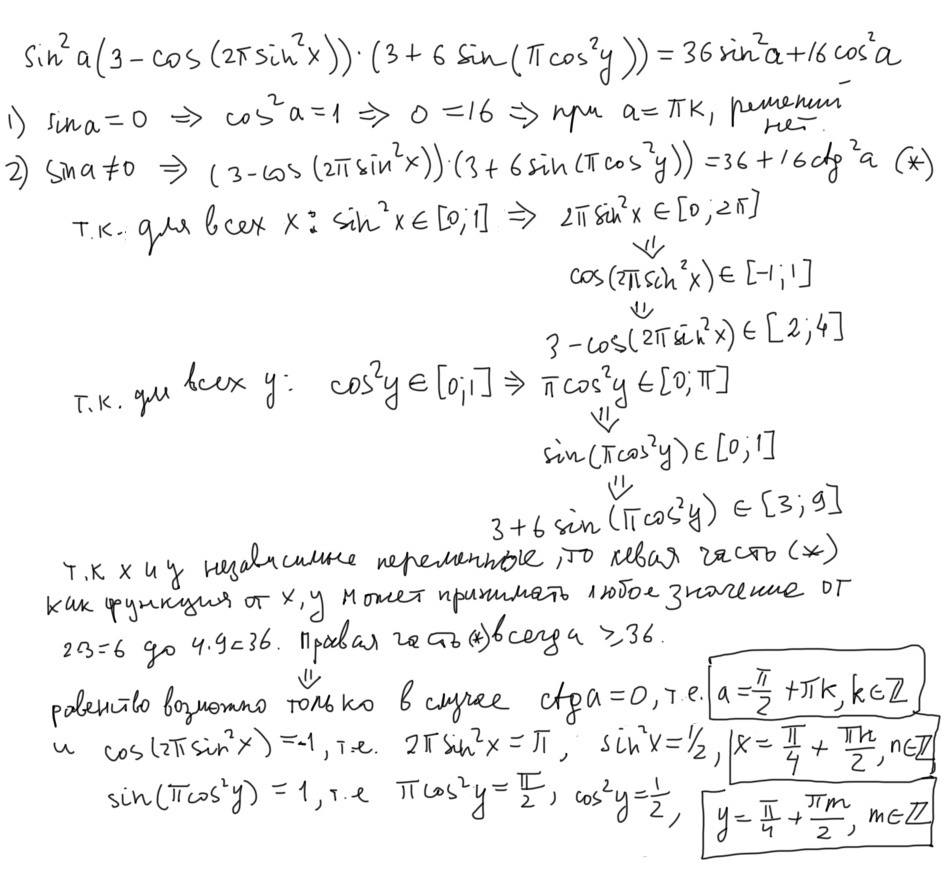 sin²a(3-cos(2πsin²x))·(3+6sin(πcos²y))=36sin²a+16cos²a
1) sina=0 ⇒ cos²a=1 ⇒ 0=16 ⇒ при a=πk, решений нет.
2) sina≠0 ⇒ (3-cos(2πsin²x))·(3+6sin(πcos²y))=36+16ctg²a (*)
т.к. для всех x: sin²x∈[0;1] ⇒ 2πsin²x∈[0;2π]
⇓
cos(2πsin²x)∈[-1;1]
⇓
3-cos(2πsin²x)∈[2;4]
т.к. для всех y: cos²y∈[0;1] ⇒ πcos²y∈[0;π]
⇓
sin(πcos²y)∈[0;1]
⇓
3+6sin(πcos²y)∈[3;9]
т.к x и y независимые переменные, то левая часть (*)
как функция от x,y может принимать любое значение от
2·3=6 до 4·9=36. Правая часть(*) всегда ≥36.
⇓
равенство возможно только в случае ctga=0, т.е. a=π/2+πk, k∈ℤ
и cos(2πsin²x)=-1, т.е. 2πsin²x=π, sin²x=1/2, x=π/4+πn/2, n∈ℤ
sin(πcos²y)=1, т.е πcos²y=π/2, cos²y=1/2, y=π/4+πm/2, m∈ℤ